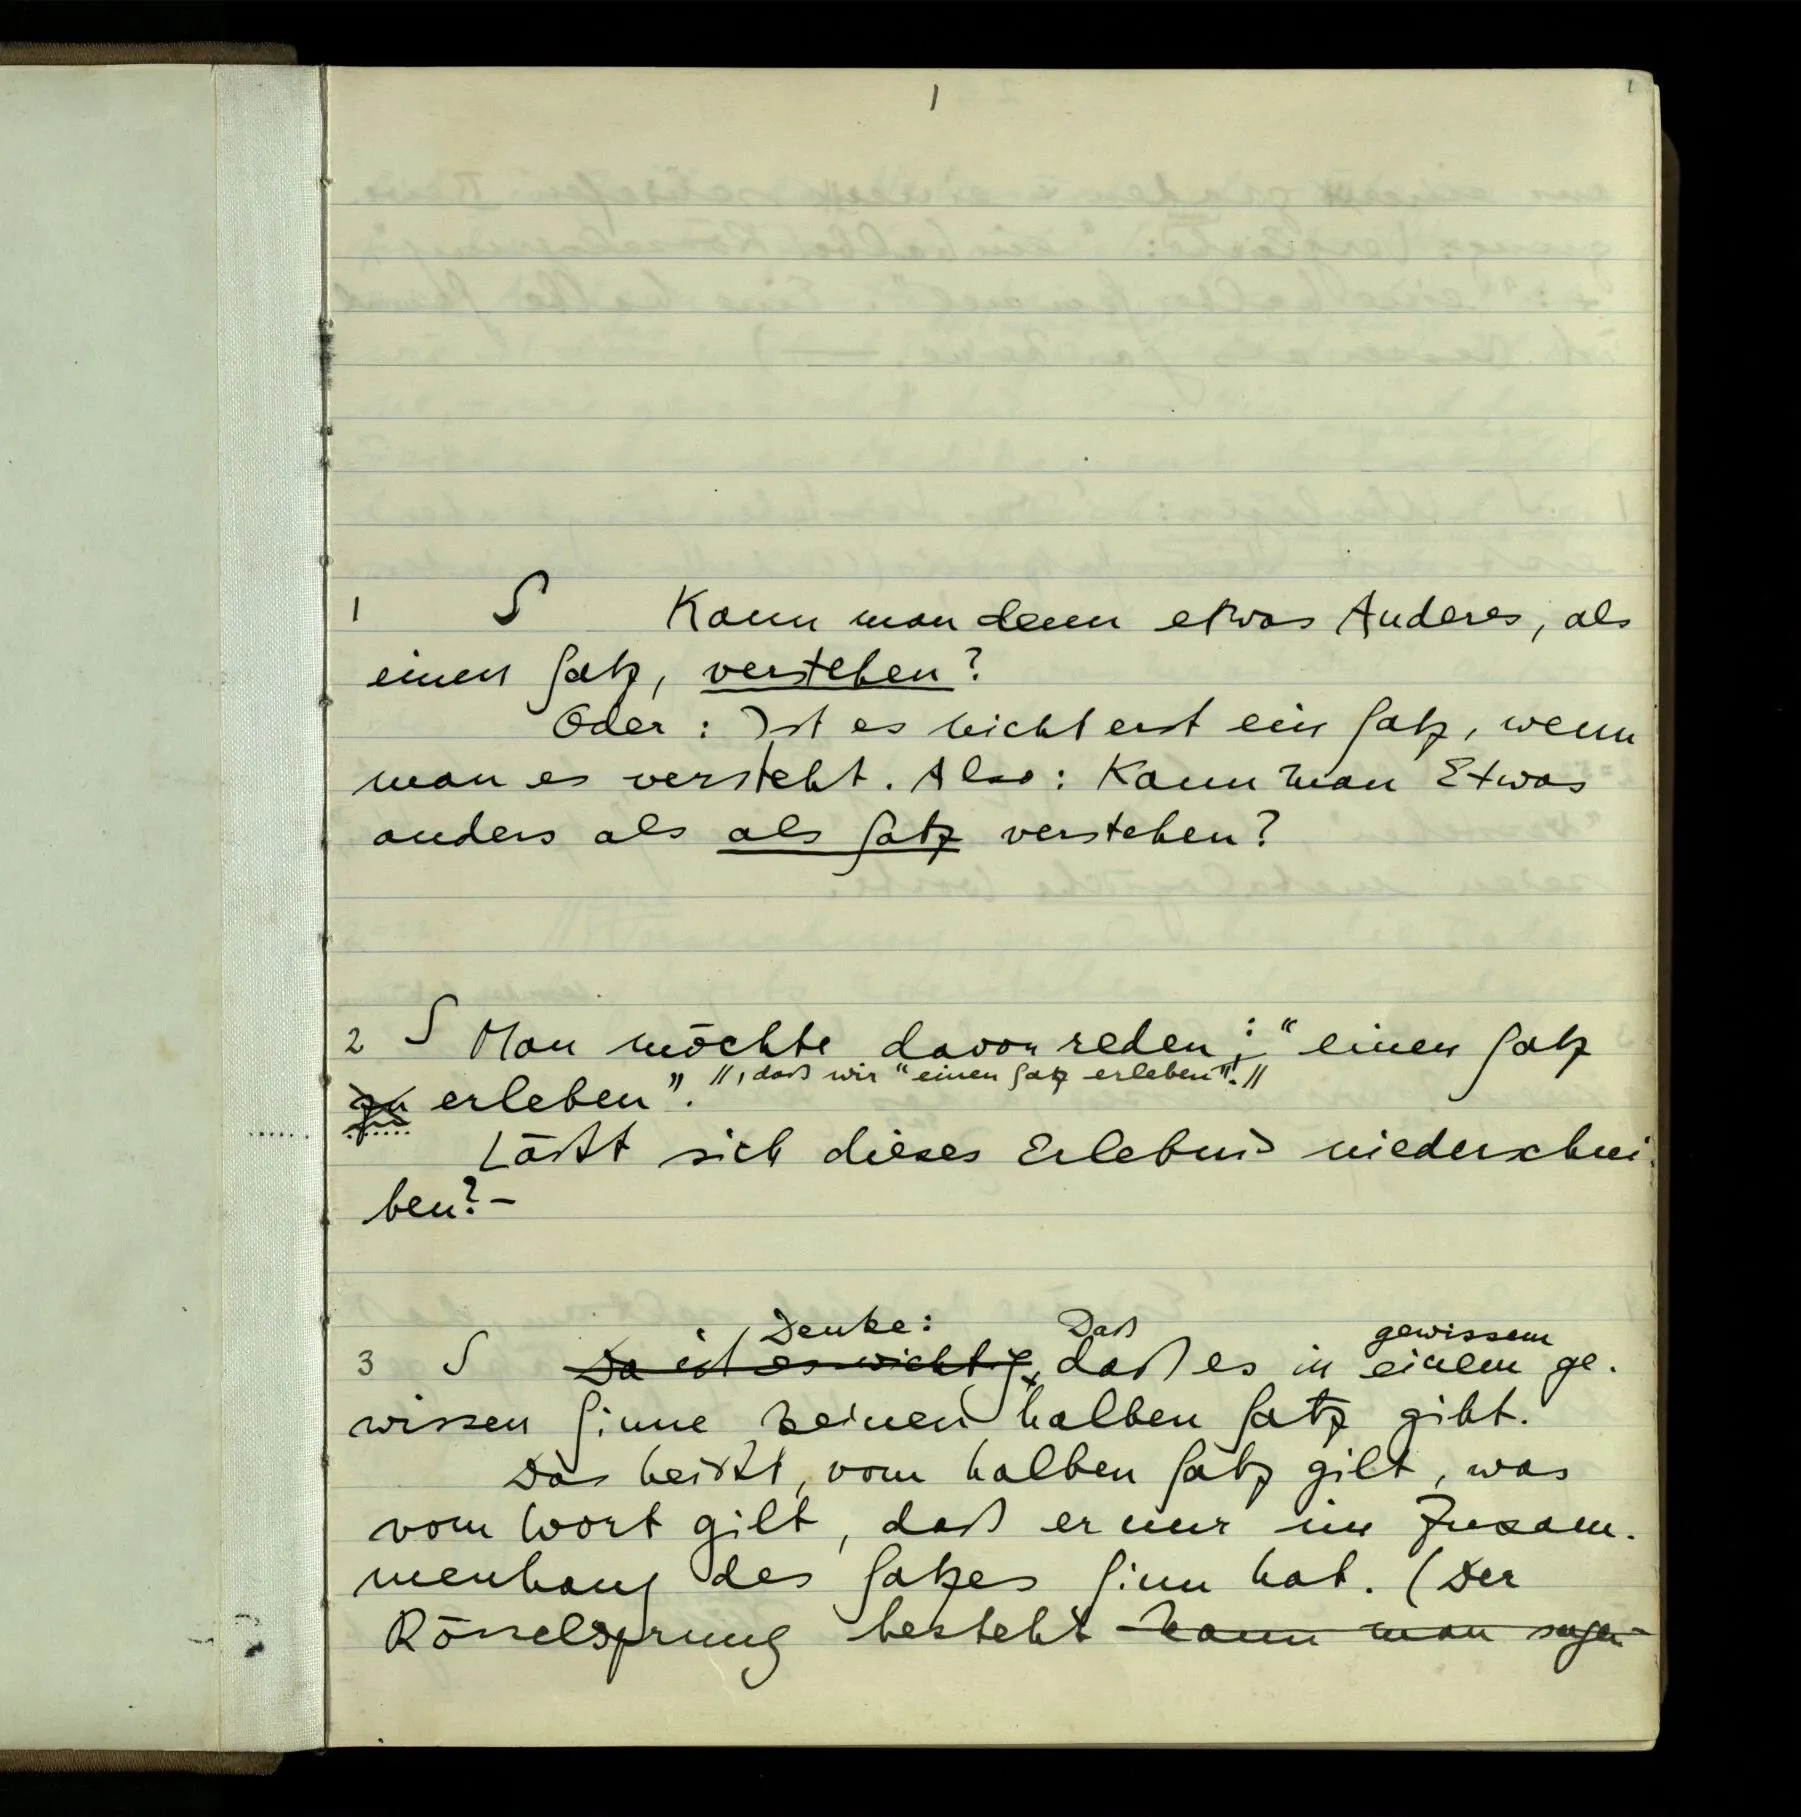 1
1 S Kann man denn etwas Anderes, als
einen Satz, verstehen?
Oder: Ist es nicht erst ein Satz, wenn
man es versteht. Also: Kann man Etwas
anders als als Satz verstehen?
2 S Man möchte davon reden: “einen Satz
//, daß wir “einen Satz erleben”.//
zu erleben”.
Läßt sich dieses Erlebnis niederschrei-
ben? –
Denke: Daß gewissem
3 S Da ist es wichtig, daß es in einem ge-
wissen Sinne keinen halben Satz gibt.
Das heißt, vom halben Satz gilt, was
vom Wort gilt, daß er nur im Zusam-
menhang des Satzes Sinn hat. (Der
Rösselsprung besteht kann man sagen